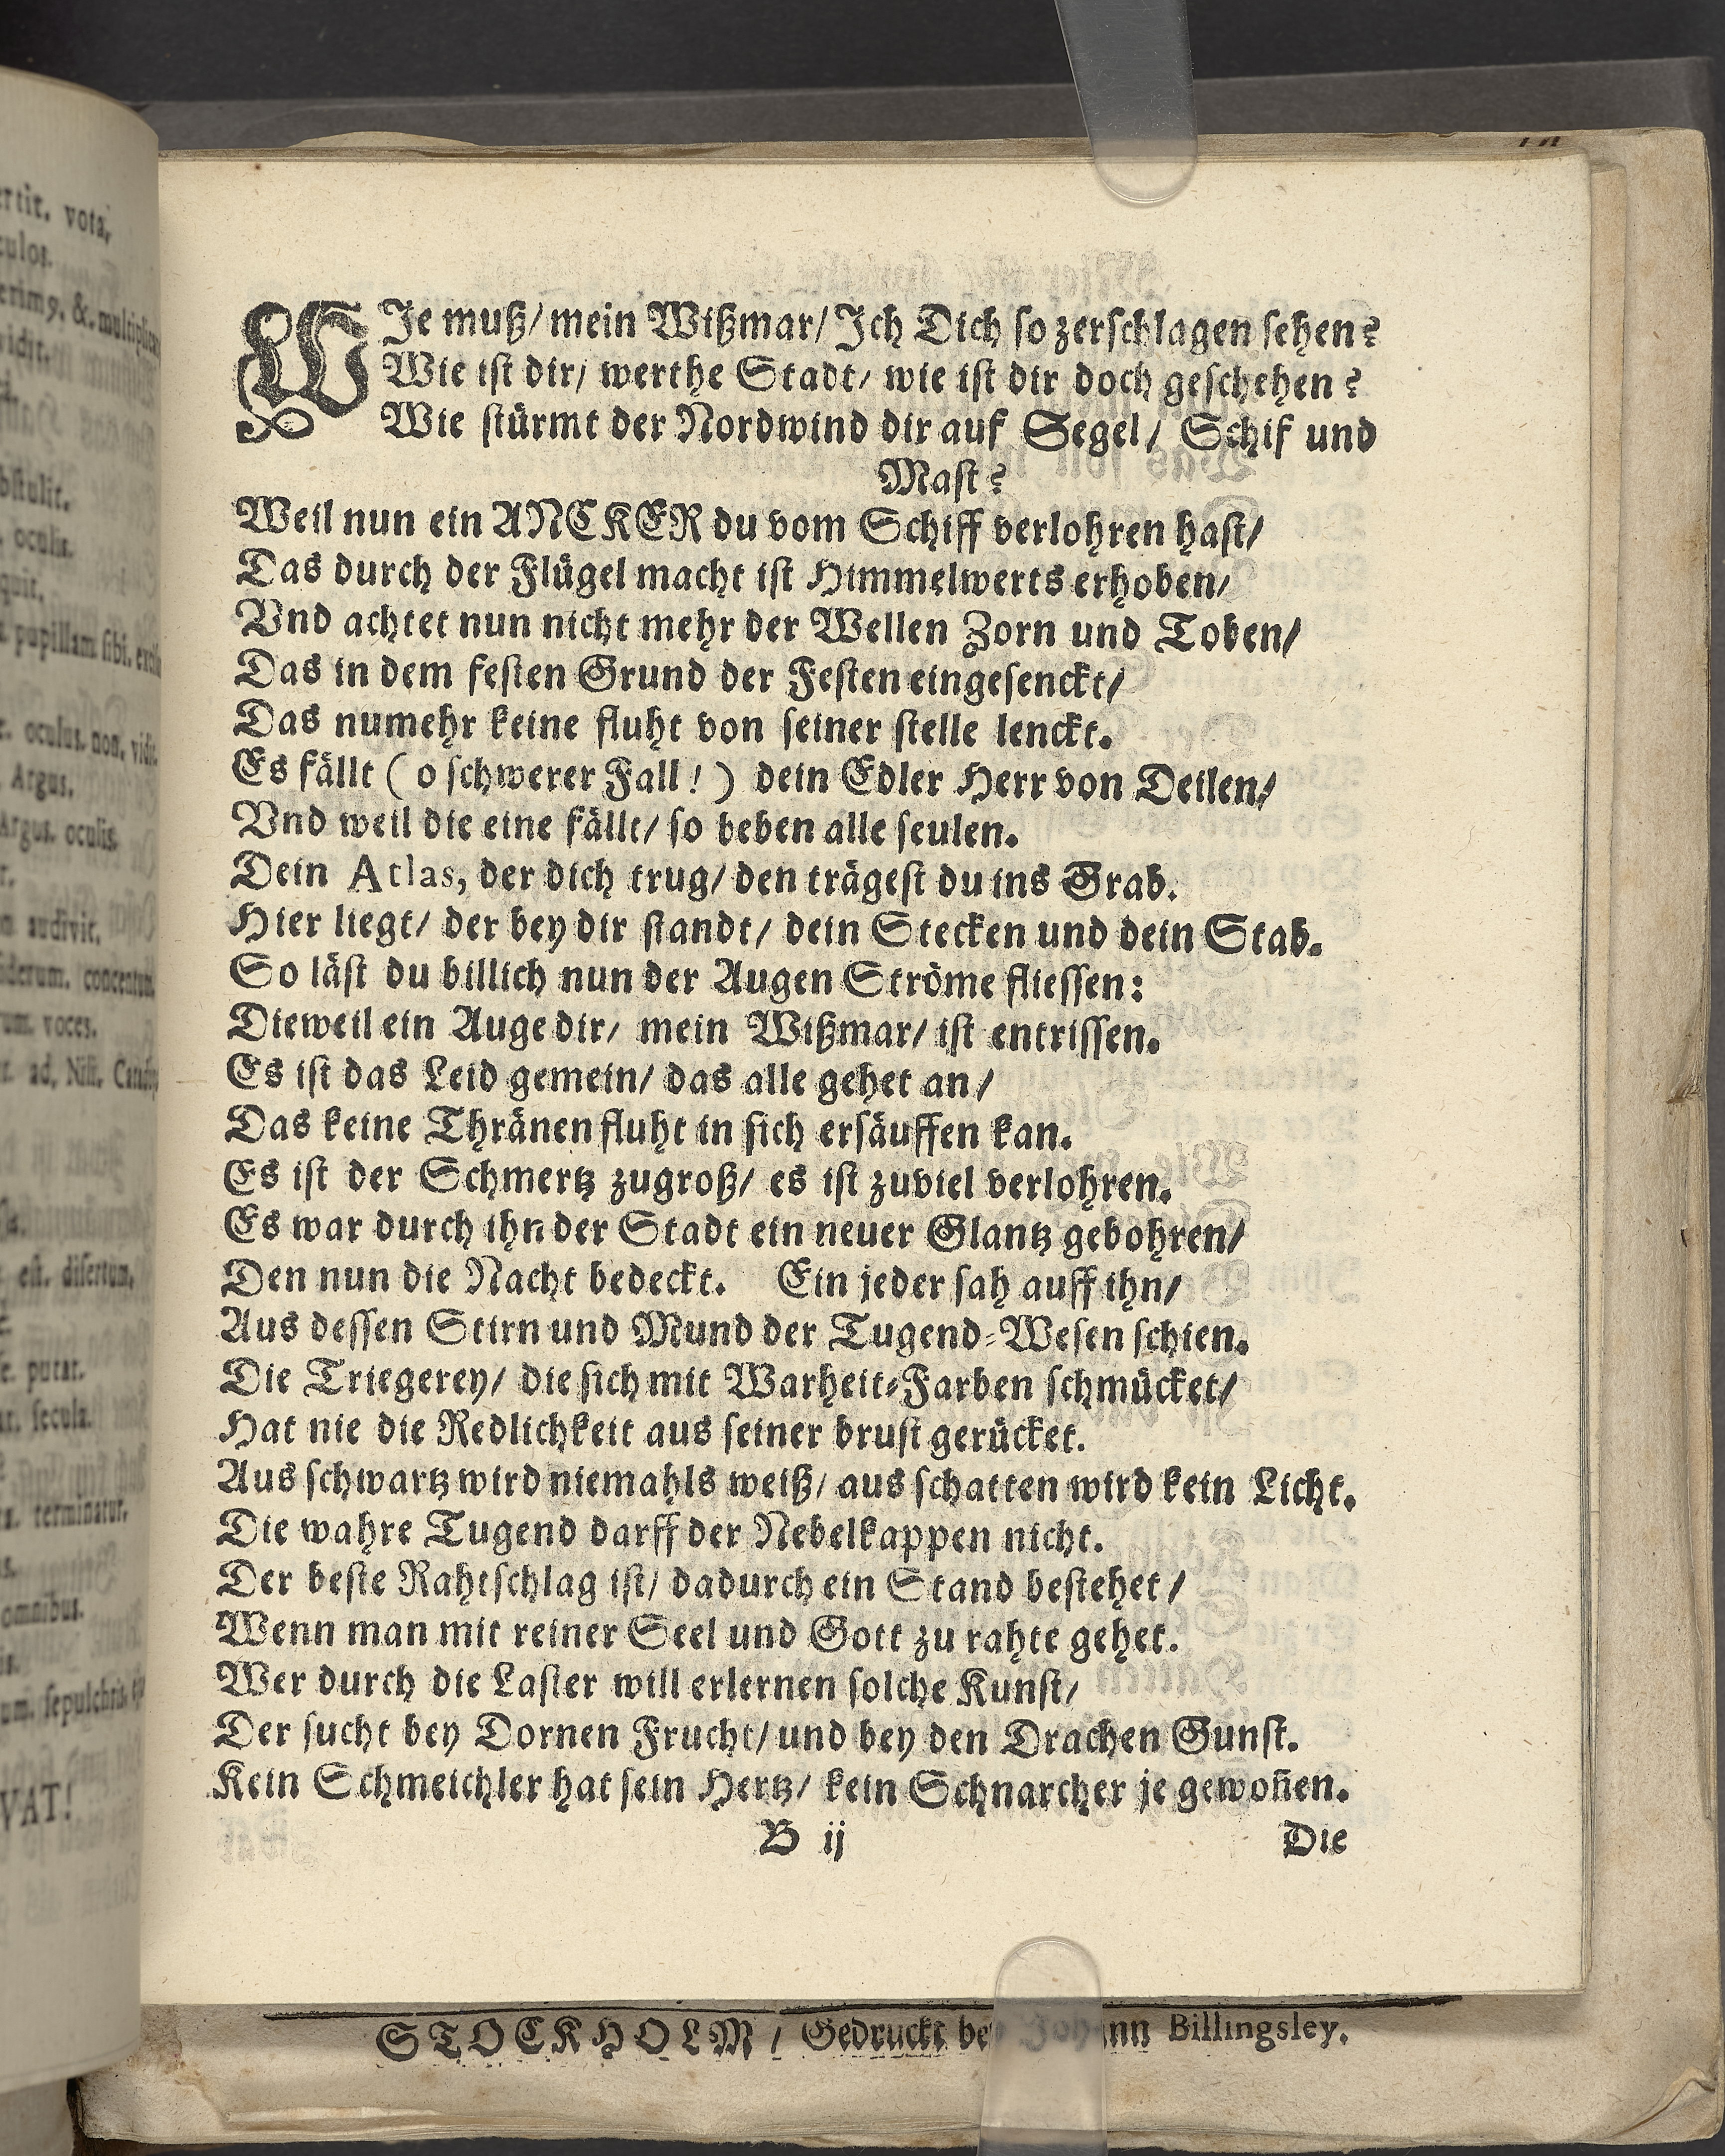 WJe muß/ mein Wißmar/ Jch Dich so zerschlagen sehen?
Wie ist dir/ werthe Stadt/ wie ist dir doch geschehen?
Wie stürmt der Nordwind dir auf Segel/ Schif und
Mast?
Weil nun ein ANCKER du vom Schiff verlohren hast/
Das durch der Flügel macht ist Himmelwerts erhoben/
Vnd achtet nun nicht mehr der Wellen Zorn und Toben/
Das in dem festen Grund der Festen eingesenckt/
Das numehr keine fluht von seiner stelle lenckt.
Es fällt ( o schwerer Fall! ) dein Edler Herr von Deilen/
Vnd weil die eine fällt/ so beben alle seulen.
Dein Atlas, der dich trug/ den trägest du ins Grab.
Hier liegt/ der bey dir standt/ dein Stecken und dein Stab.
So läst du billich nun der Augen Ströme fliessen:
Dieweil ein Auge dir/ mein Wißmar/ ist entrissen.
Es ist das Leid gemein/ das alle gehet an/
Das keine Thränen fluht in sich ersäuffen kan.
Es ist der Schmertz zugroß/ es ist zuviel verlohren.
Es war durch ihn der Stadt ein neuer Glantz gebohren/
Den nun die Nacht bedeckt. Ein jeder sah auff ihn/
Aus dessen Stirn und Mund der Tugend-Wesen schien.
Die Triegerey/ die sich mit Warheit-Farben schmücket/
Hat nie die Redlichkeit aus seiner brust gerücket.
Aus schwartz wird niemahls weiß/ aus schatten wird kein Licht.
Die wahre Tugend darff der Nebelkappen nicht.
Der beste Rahtschlag ist/ dadurch ein Stand bestehet/
Wenn man mit reiner Seel und Gott zu rahte gehet.
Wer durch die Laster will erlernen solche Kunst/
Der sucht bey Dornen Frucht/ und bey den Drachen Gunst.
Kein Schmeichler hat sein Hertz/ kein Schnarcher je gewoñen.
B ij Die
STOCKHOLM/ Gedruckt bey Johann Billingsley.